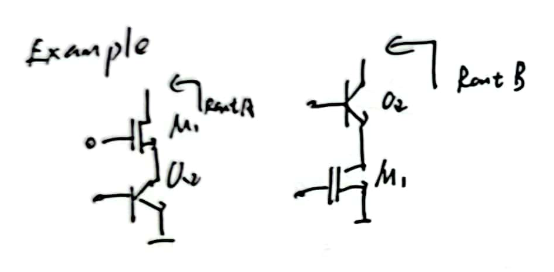 Example
Rout A
M1
Q2
Rout B
Q2
M1